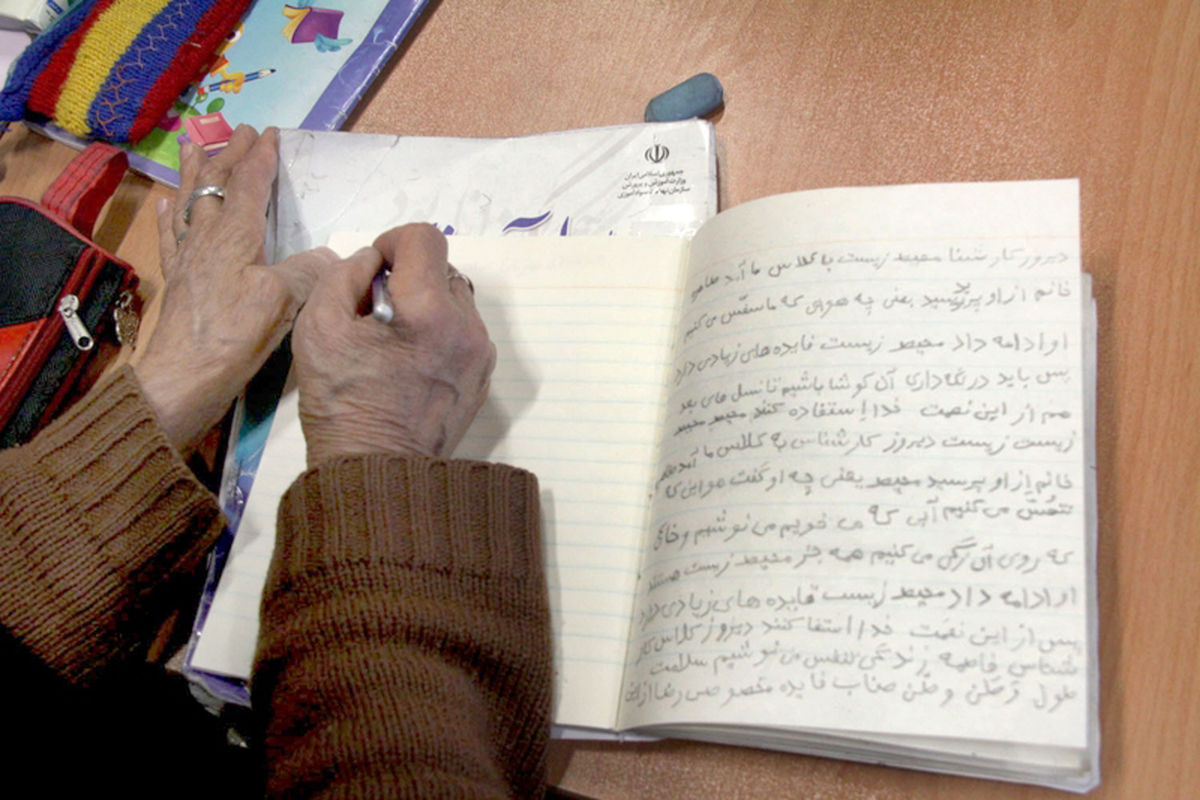 جمهوری اسلامی ایران
وزارت آموزش و پرورش
سازمان نهضت سوادآموزی
دیروز کارشنا محیط زیست با کلاس ما آمد طاهره
خانم از او پرسید یعنی چه هوای که ما سفّس می کنیم
او ادامه داد محیط زیست فایده های زیادی دارد
پس باید در نگه داری آن کوشا باشیم تا نسل های بعد
هم از این نعمت خدا استفاده کنند محیط محیط
زیست زیست دیروز کارشناس به کلاس ما آمد
خانم از او پرسید محیط یعنی چه او گفت هوایی که
تنفّس می کنیم آبی که می خوریم می نوشیم و خاکی
که روی آن زندگی می کنیم همه جز محیط زیست هستند
او ادامه داد محیط زیست فایده های زیادی دارد
پس از این نعمت خدا استفا کنند دیروز کلاس کار
شناس فاصیه زندگی تنفس می نوشیم سلامت
طول وَطَن وطن صناب فایده مخصوص رضا